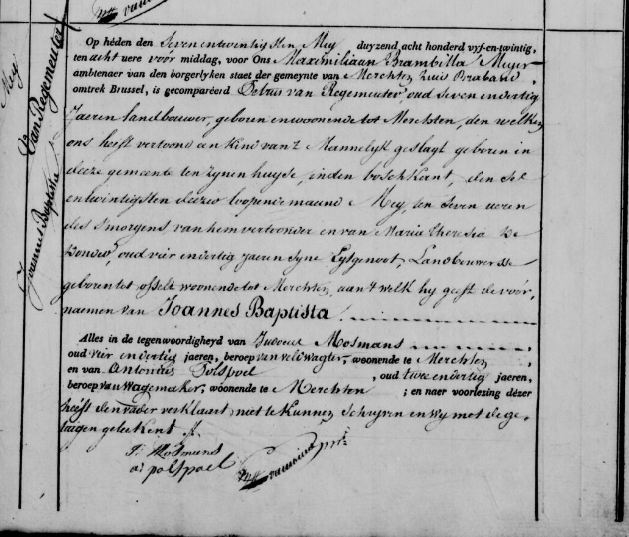 Op héden den Seven entwintigsten Mey duyzend acht honderd vyf-en-twintig,
ten acht uere voór middag, voor Ons Maximiliaan Brambilla Meyer
ambtenaer van den borgerlyken staet der gemeynte van Merchten Zuid Braband
omtrek Brussel, is gecomparéérd Petrus van Regemeuter, oud seven endertig
Jaeren landbouwer, geboren en woonende tot Merchten, den welken
ons heeft vertoond een kind van 't Mannelyk geslagt geboren in
deeze gemeente ten zynen huyse, in den boschkant, den
entwintigsten deezer loopende maend Mey, ten Seven ueren
des smorgens van hem vertoonder en van Maria Theresia De
oud vier endertig jaeren syne Egtgenoot, Landbouwersse
geboren tot osselt woonende tot Merchten, aan 't welk hy geeft de voór,
naemen van Joannes Baptista
Alles in de tegenwoordigheyd van Mosmans
oud vier endertig jaeren, beroep van veldwagter, woonende te Merchten
en van Antonius Polspoel, oud twee endertig jaeren,
beroep van Wagemaker, woonende te Merchten; en naer voorlezing dézer
heeft den vader verklaert niet te kunnen Schryven en wy met de ge
tuigen geteekent
F. Mosmans
a: polspoel
Joannes Baptiste
Van Regemeuter
Mey